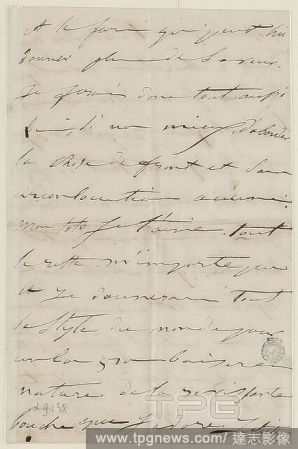 et le             qui peut lui
donner plus de saveur.
Je ferai donc tout aussi
bien, si non mieux, d'aborder
la chose de front et sans
circonlocution aucune:
mon toto je t'aime. Tout
le reste m'importe peu
et je donnerai tout
le style du monde pour
un bon gros baiser en
nature de ta ravissante
bouche que j'adore
TPG
www.tpgnews.com/達志影像